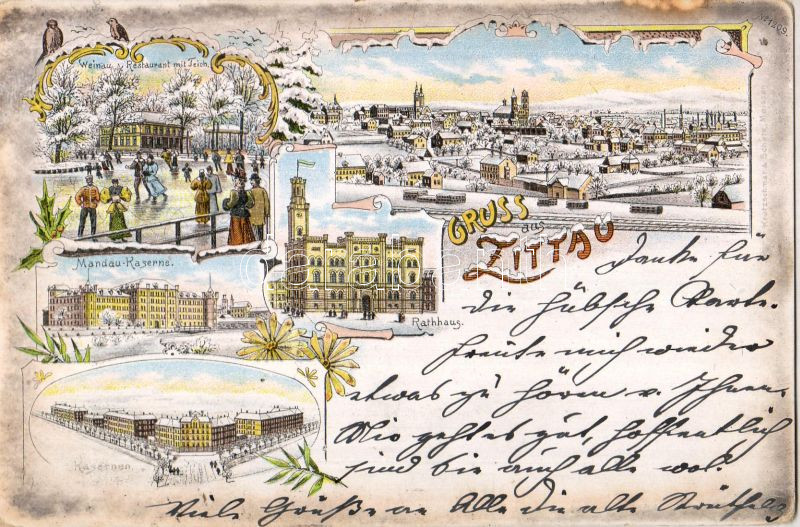 Weinau, Restaurant mit Teich.
No 1209.
Mandau-Kaserne.
Rathhaus.
Kasernen.
GRUSS
aus
ZITTAU
Danke für
die hübsche Karte.
Freute mich wieder
etwas zu hören v. Ihnen
Mir geht es gut, hoffentlich
sind Sie auch alle wol.
Viele Grüße an Alle die alte